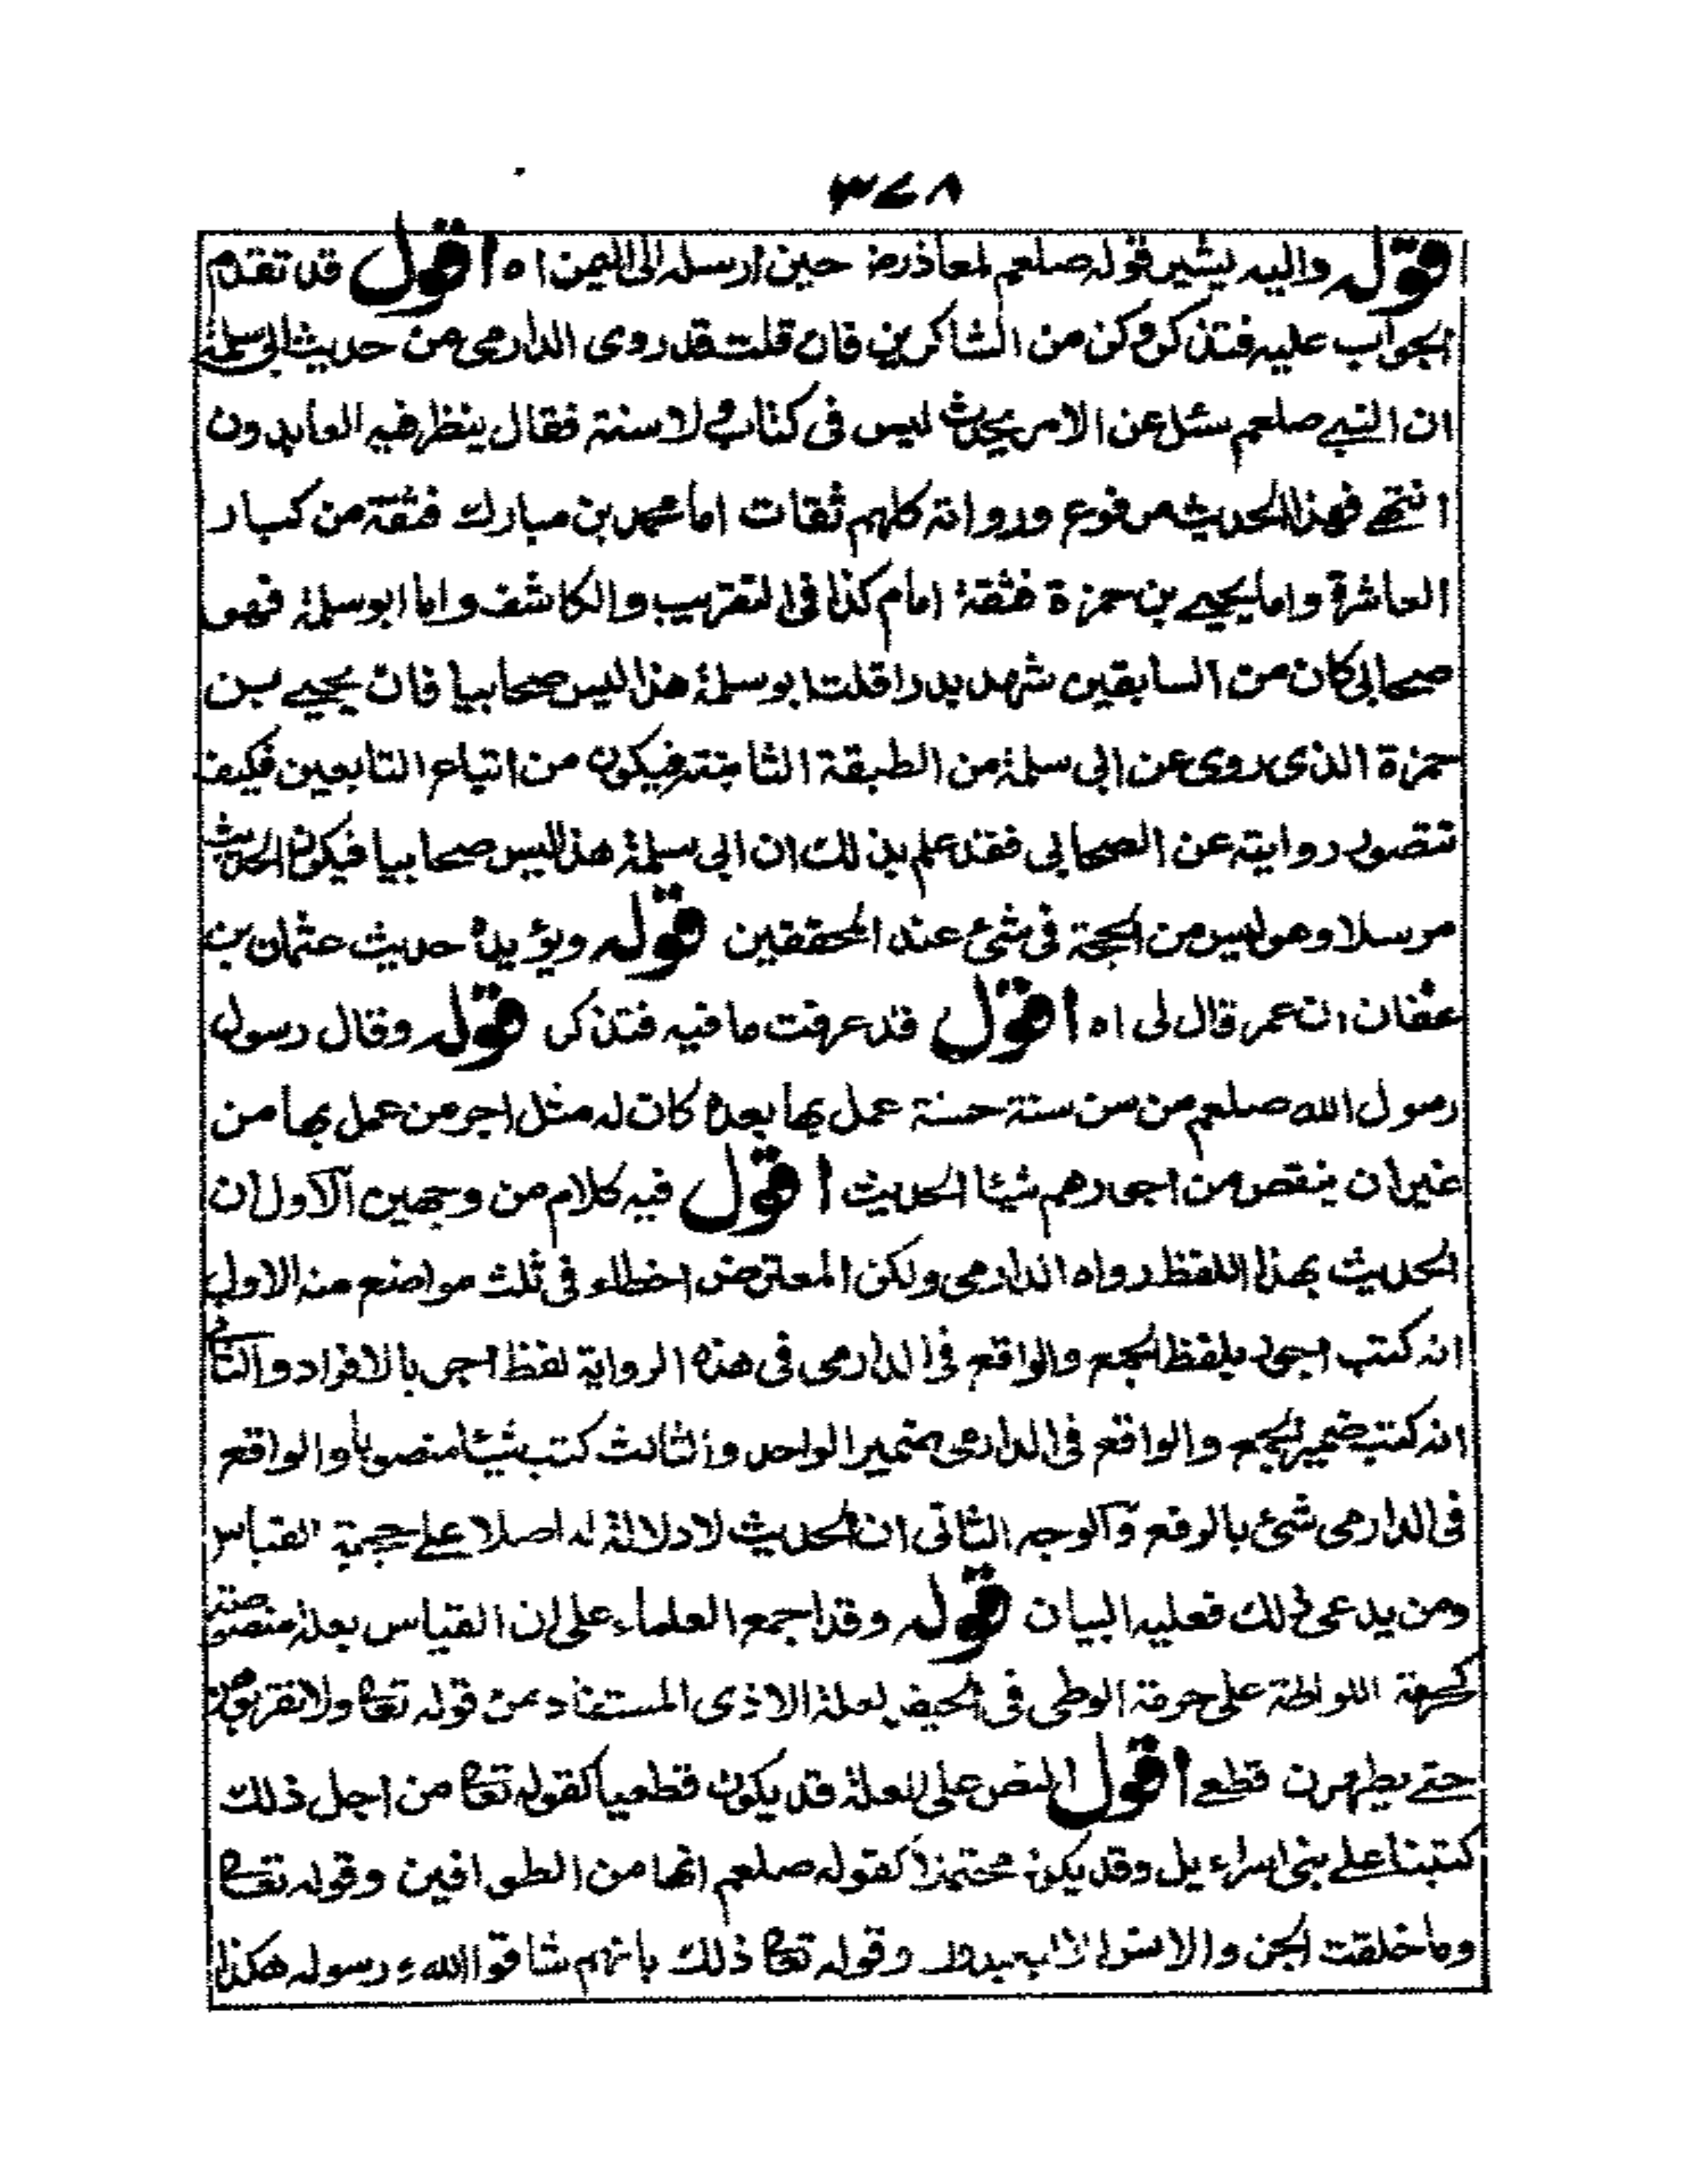 ٣٧٨
قوله واليه يشير قوله صلعم لمعاذ رض حين ارسله الى اليمن اه اقول قد تقدم
الجواب عليه فتذكر وكن من الشاكرين فان قلت قد روى الدارمى من حديث ابى سلمة
ان النبى صلعم سئل عن الامر يحدث ليس فى كتاب ولا سنة فقال ينظر فيه العابدون
انتهى فهذا الحديث مرفوع ورواته كلهم ثقات اما محمد بن مبارك فثقة من كبار
العاشرة واما يحيى بن حمزة فثقة امام كذا فى التقريب والكاشف واما ابو سلمة فهو
صحابى كان من السابقين شهد بدرا قلت ابو سلمة هذا ليس صحابيا فان يحيى بن
حمزة الذى روى عن ابى سلمة من الطبقة الثامنة فيكون من اتباع التابعين فكيف
تتصور روايته عن الصحابى فقد علم بذلك ان ابى سلمة هذا ليس صحابيا فيكون الحديث
مرسلا وهو ليس من الحجة فى شئ عند المحققين قوله ويؤيده حديث عثمان بن
عفان ان عمر قال لى اه اقول قد عرفت ما فيه فتذكر قوله وقال رسول
رسول الله صلعم من سن سنة حسنة عمل بها بعده كان له مثل اجر من عمل بها من
غير ان ينقص من اجورهم شيئا الحديث اقول فيه كلام من وجهين الاول ان
الحديث بهذا اللفظ رواه الدارمى ولكن المعترض اخطاء فى ثلث مواضع منه الاول
انه كتب اجور بلفظ الجمع والواقع فى الدارمى فى هذه الرواية لفظ اجر بالافراد والثانى
انه كتب ضمير الجمع والواقع فى الدارمى ضمير الواحد والثالث كتب شيئا منصوبا والواقع
فى الدارمى شئ بالرفع والوجه الثانى ان الحديث لا دلالة له اصلا على حجية القياس
ومن يدعى ذلك فعليه البيان قوله وقد اجمع العلماء على ان القياس بعلة منصوصة
كحرمة اللواطة على حرمة الوطى فى الحيض لعلة الاذى المستفاد من قوله تعا ولا تقربوهن
حتى يطهرن قطعى اقول النص على العلة قد يكون قطعيا كقوله تعا من اجل ذلك
كتبنا على بنى اسراءيل وقد يكون محتملا كقوله صلعم انها من الطوافين وقوله تعا
وما خلقت الجن والانس الا ليعبدون وقوله تعا ذلك بانهم شاقوا الله ورسوله هكذا